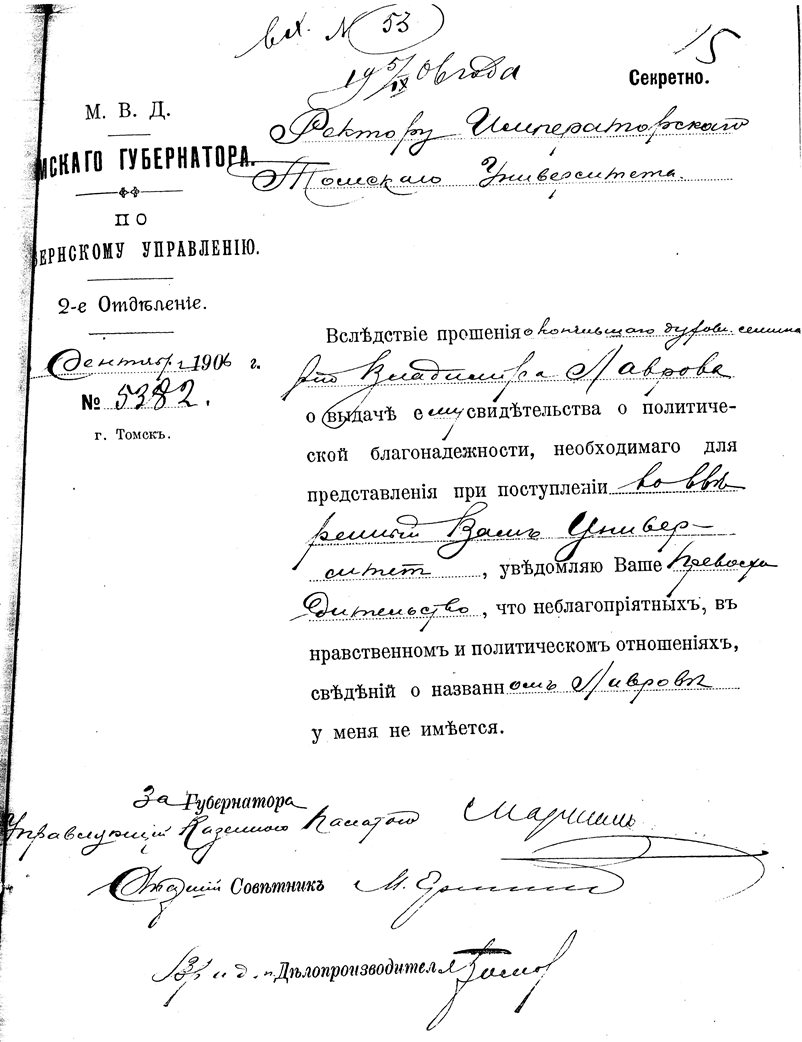 вх. № 53
15
19 5/IX 06 года
Секретно.
М. В. Д.
МСКАГО ГУБЕРНАТОРА.
ПО
ЕРНСКОМУ УПРАВЛЕНІЮ.
2-е Отдѣленіе.
Сентябр 1906 г.
№ 5382.
г. Томскъ.
Ректору Императорскаго
Томскаго Университета.
Вслѣдствіе прошенія окончившаго духовн. семина
рію Владимира Лаврова
о выдачѣ ему свидѣтельства о политиче-
ской благонадежности, необходимаго для
представленія при поступленіи во ввѣ
ренный Вамъ Универ-
ситет, увѣдомляю Ваше Превосхо
дительство, что неблагопріятныхъ, въ
нравственномъ и политическомъ отношеніяхъ,
свѣдѣній о названномъ Лавровѣ
у меня не имѣется.
За Губернатора
Управляющій Казенною Палатою
Старшій Совѣтникъ М.
Вр. и. д. Дѣлопроизводителя